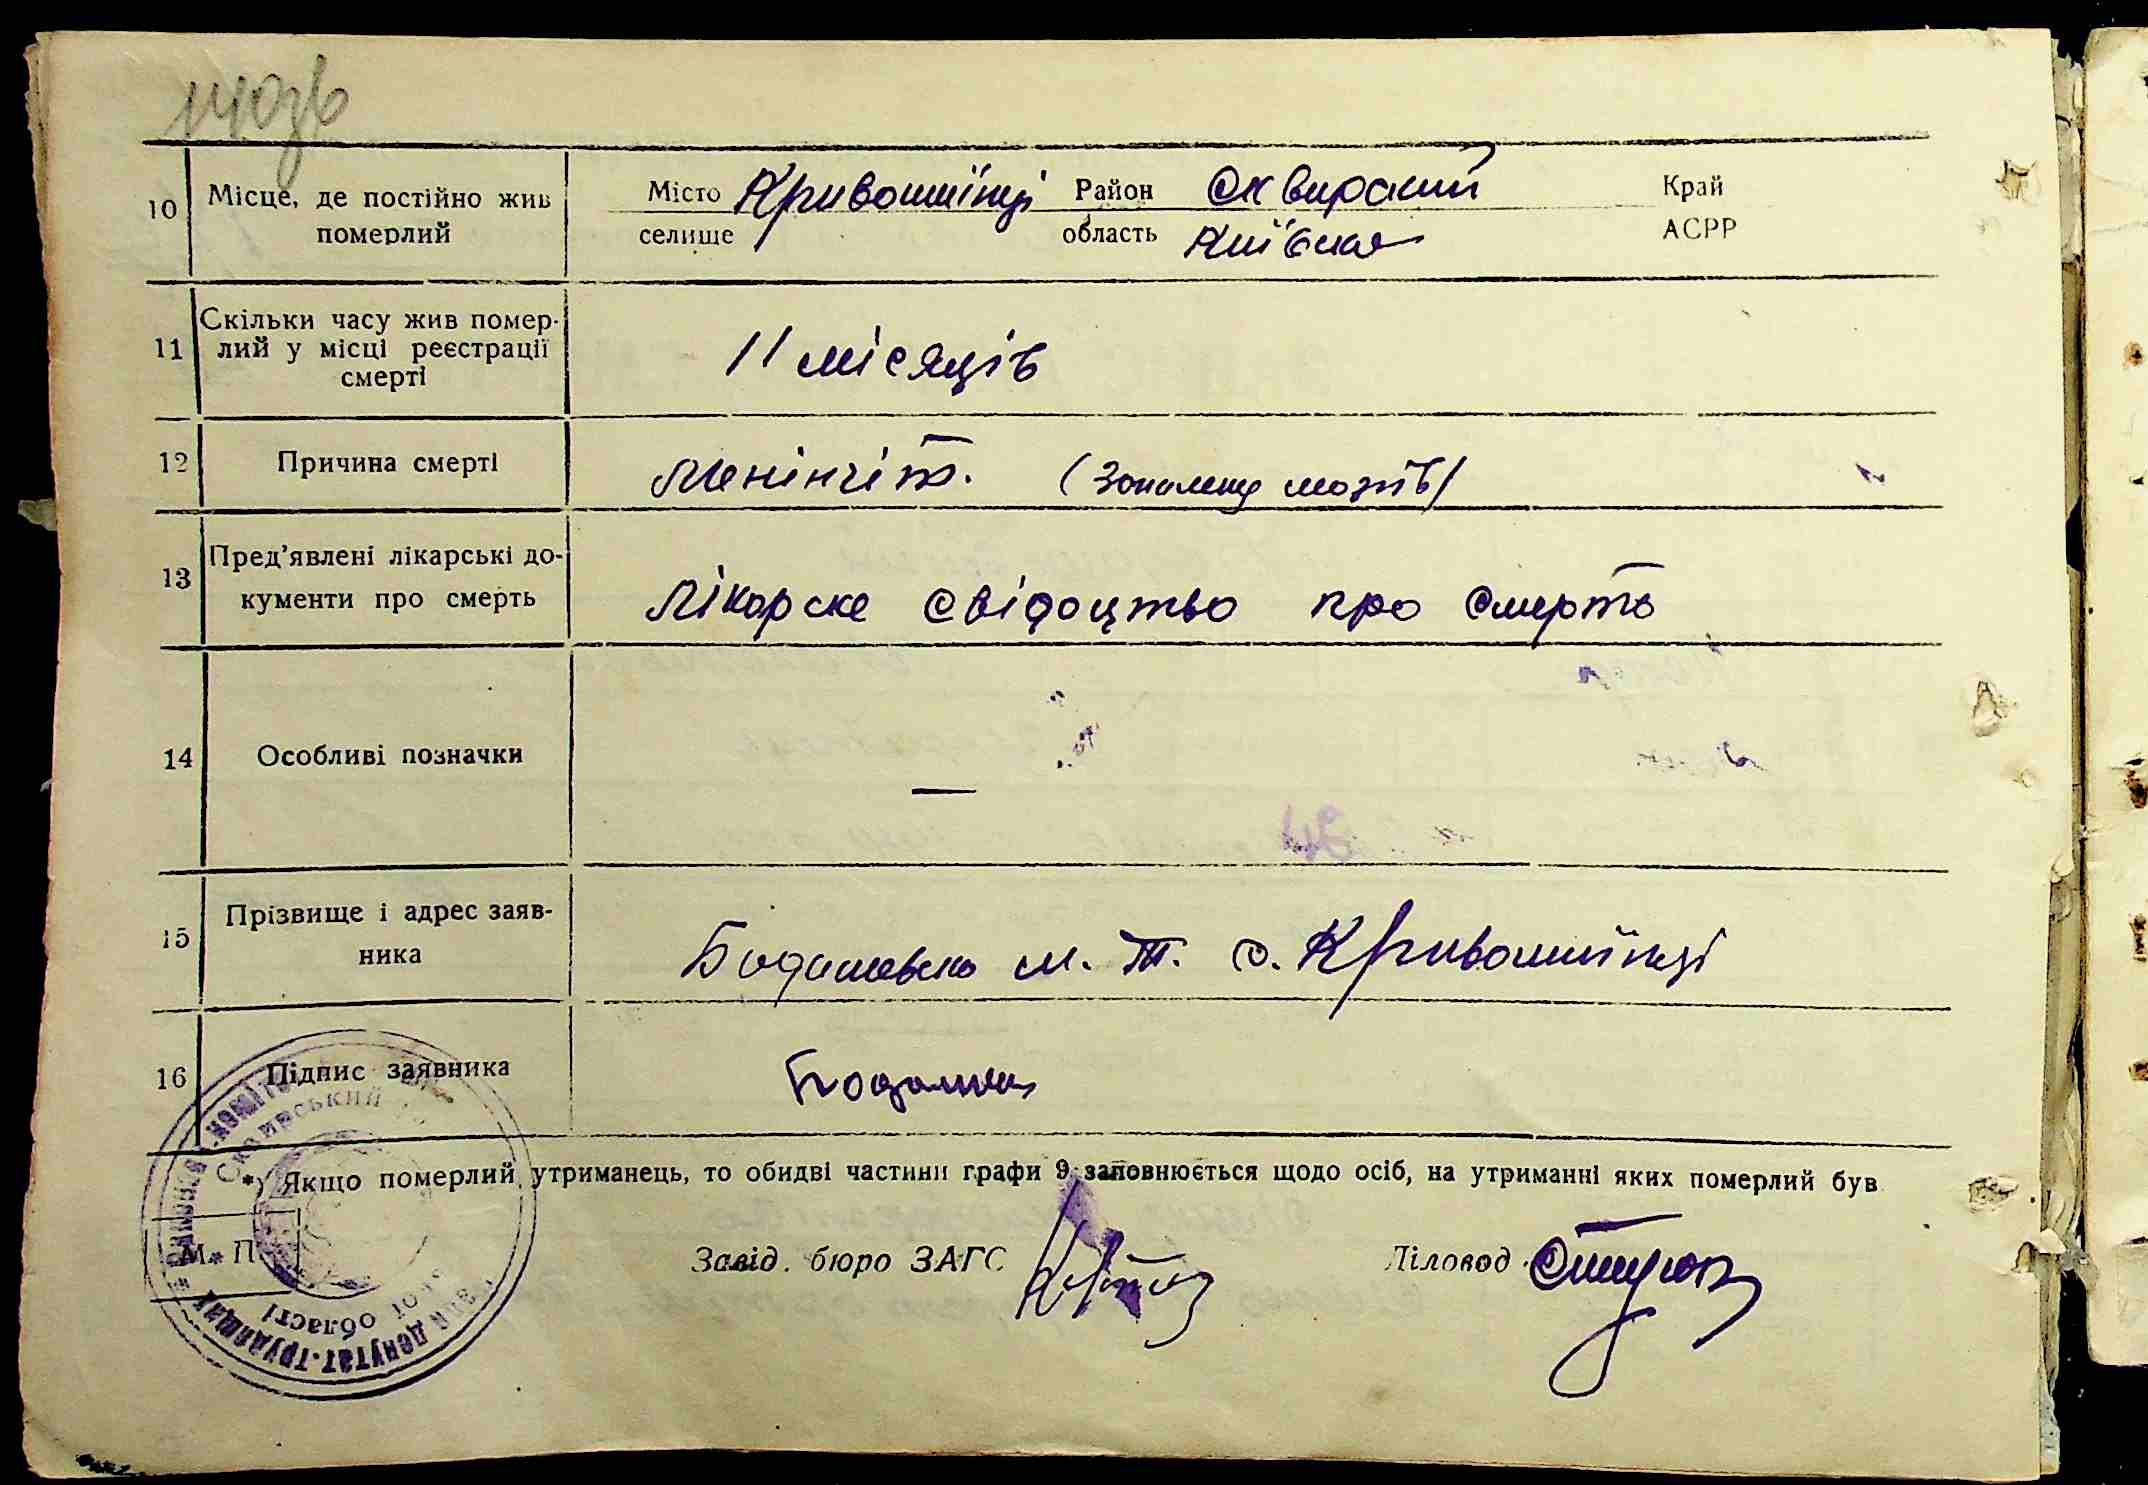 10 Місце, де постійно жив померлий
Місто Кривошиїнці Район Сквирский Край
селище область Київска АСРР
11 Скільки часу жив помер-
лий у місці реєстрації
смерті
11 місяців
12 Причина смерті
Менінгіт. (Запаленн мозків)
13 Пред'явлені лікарські до-
кументи про смерть
Лікарске свідоцтво про смерть
14 Особливі позначки
—
15 Прізвище і адрес заяв-
ника
М. Т. с. Кривошиїнці
16 Підпис заявника
*) Якщо померлий утриманець, то обидві частини графи 9 заповнюється щодо осіб, на утриманні яких померлий був
М. П.
Завід. бюро ЗАГС
Діловод
Сквирський
області
депутат. трудящих